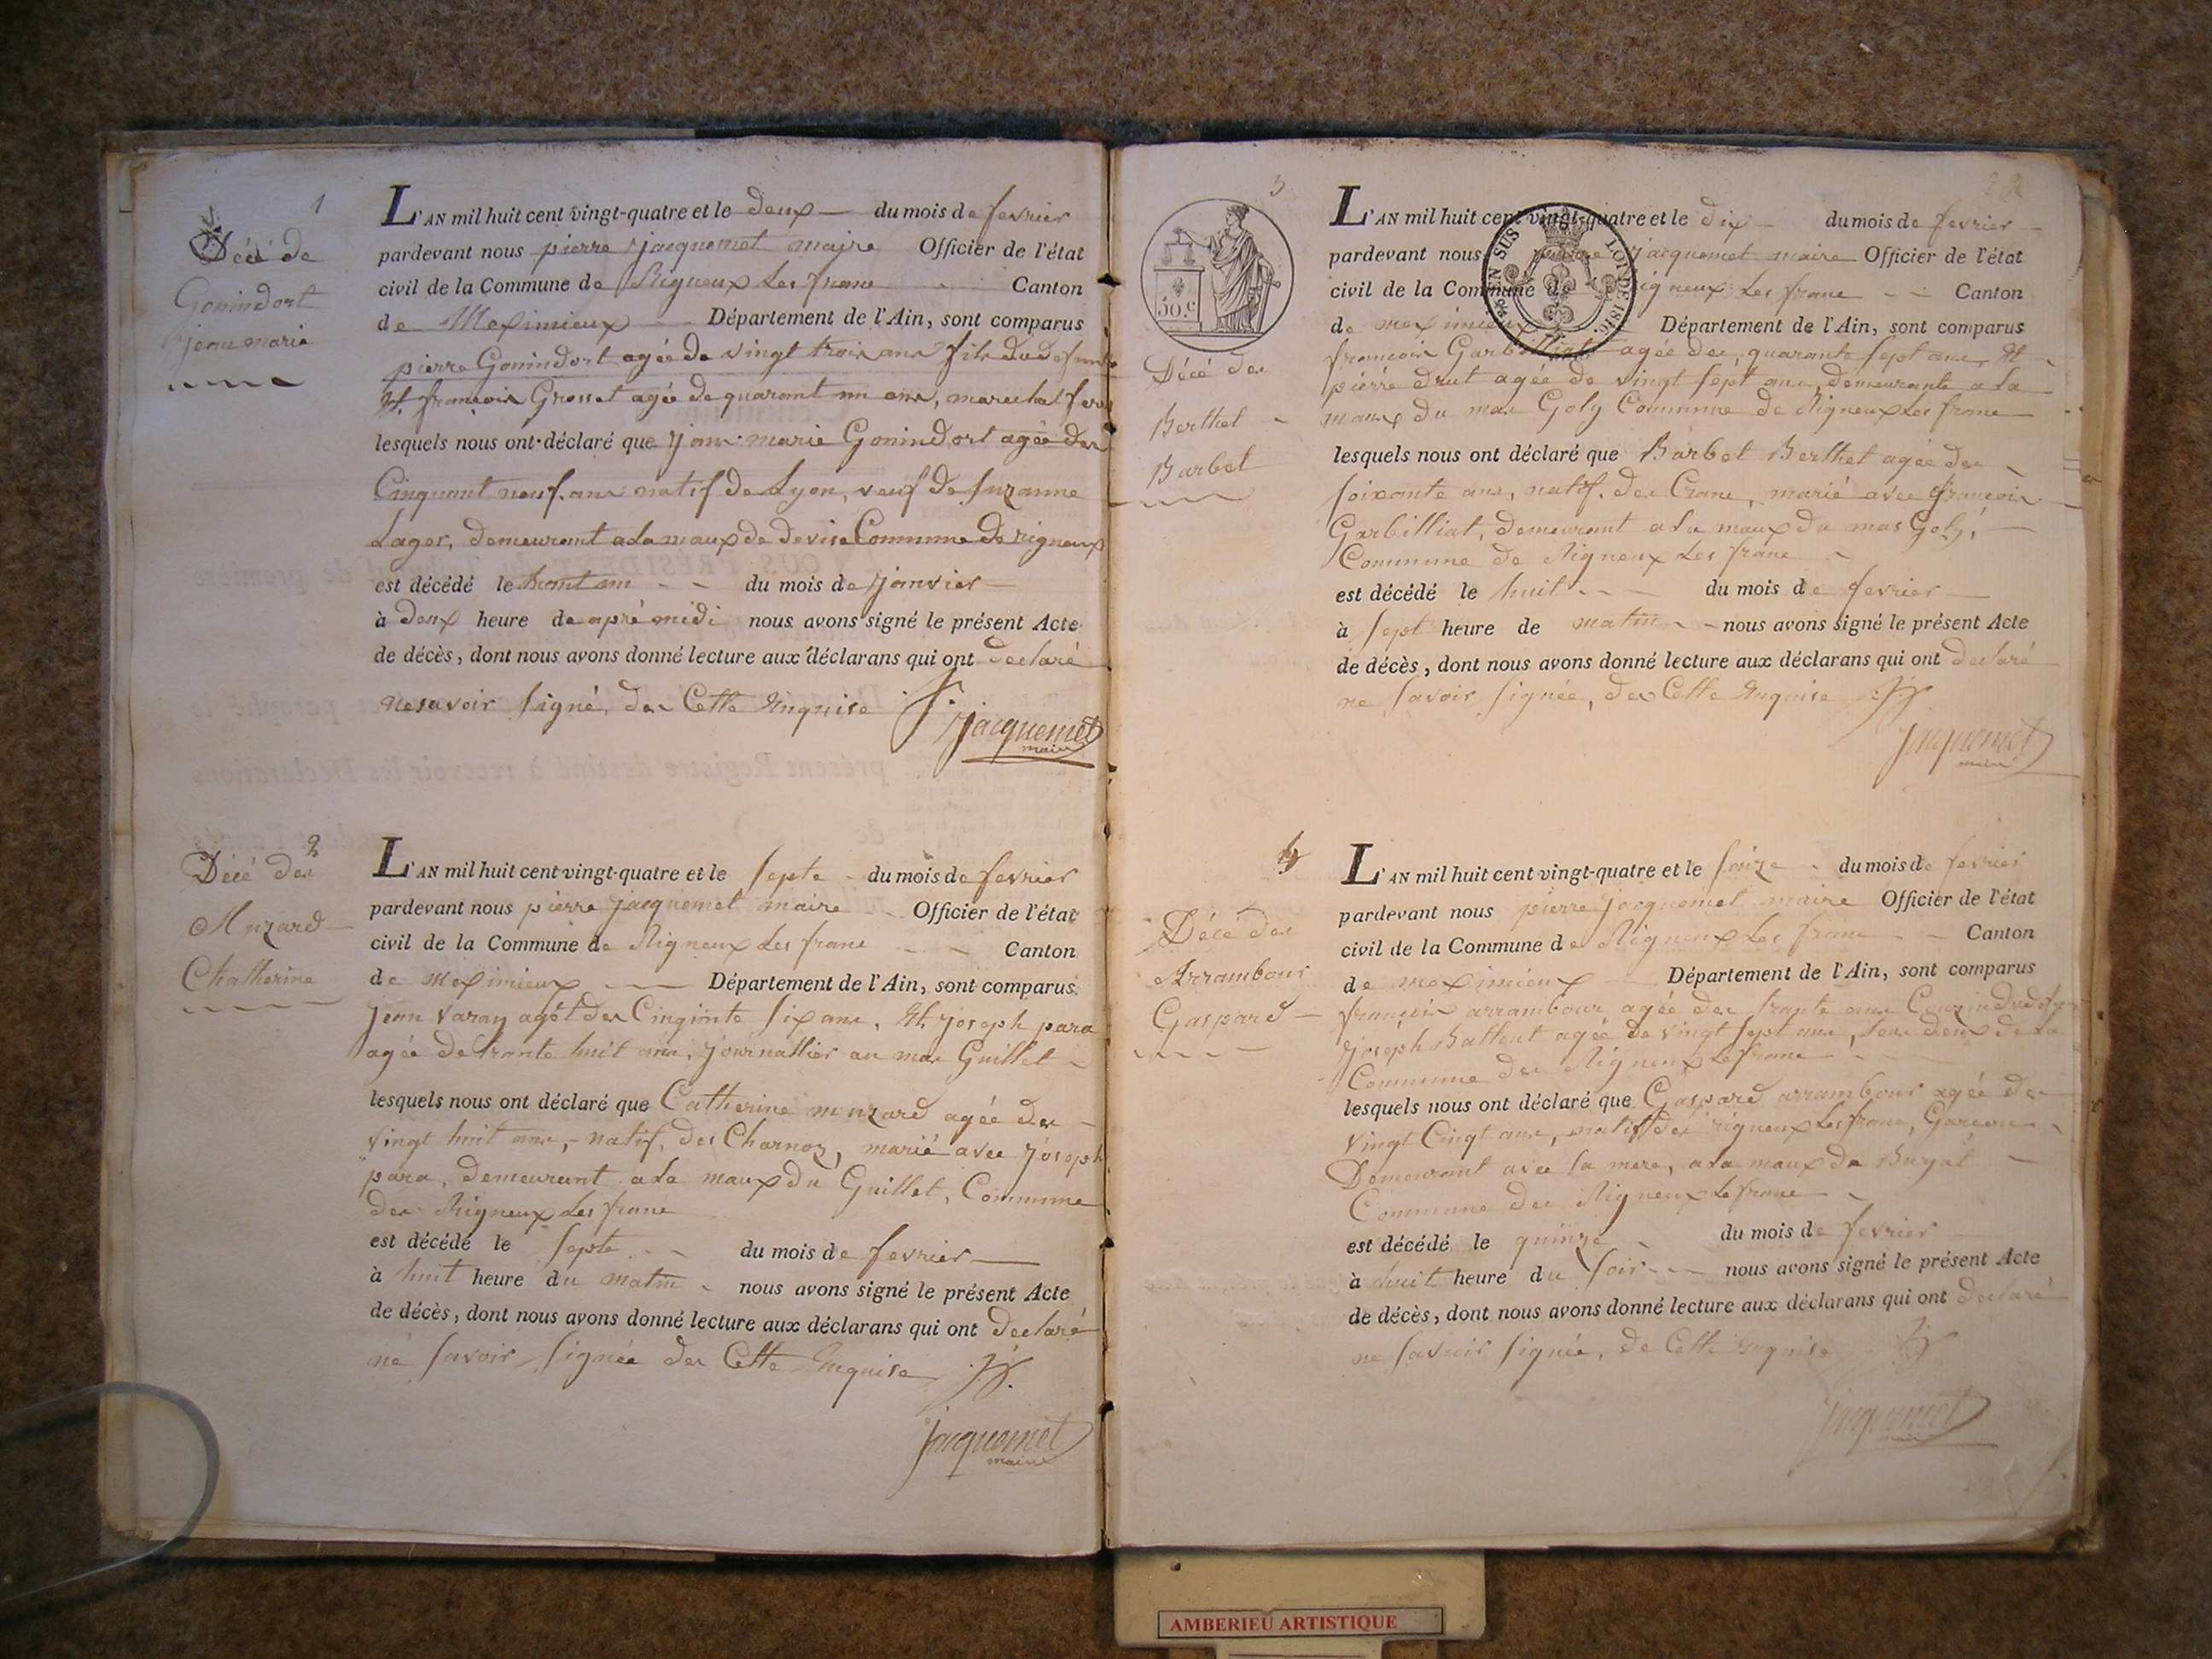 1
Décé de
Gonindort
Jeau marie
L'AN mil huit cent vingt-quatre et le deux du mois de fevrier
pardevant nous pierre jacquemet maire Officier de l'état
civil de la Commune de Rigneux Les franc Canton
de Meximieux Département de l'Ain, sont comparus
pierre Gonindort agée de vingt trois ans fils du defunt
et françois Grosset agée de quarant un ans, marechal
lesquels nous ont déclaré que jean marie Gonindort agée des
Cinquant neuf ans natif de Lyon, veuf de suzanne
Lager, demeurant a la maux de devise Commune de rigneux
est décédé le trant un du mois de janvier
à deux heure de apré midi nous avons signé le présent Acte
de décès, dont nous avons donné lecture aux déclarans qui ont declaré
ne savoir signé, des Cette Enquise
Jacquemet
maire
2
Décé des
Muzard
Chatherine
L'AN mil huit cent vingt-quatre et le septe du mois de fevrier
pardevant nous pierre jacquemet maire Officier de l'état
civil de la Commune de Rigneux Les franc Canton
de Meximieux Département de l'Ain, sont comparus
jean varay agét des Cinqinte six ans, Et joseph para
agée de trante huit ans, journallier au mas Guillet
lesquels nous ont déclaré que Catherine muzard agée des
vingt huit ans, natif, des Charnoz, marié avec joseph
para, demeurant a la maux du Guillet, Commune
des Rigneux Les franc
est décédé le septe du mois de fevrier
à huit heure du matin nous avons signé le présent Acte
de décès, dont nous avons donné lecture aux déclarans qui ont declaré
ne savoir signée des Cette Enquise
jacquemet
maire
3
50.C
EN SUS
LOI DE 1816
Décé des
Berthet
Barbet
L'AN mil huit cent vingt-quatre et le dix du mois de fevrier
pardevant nous pierre jacquemet maire Officier de l'état
civil de la Commune de Rigneux Les franc Canton
de meximieux Département de l'Ain, sont comparus
francois Garbilliat agée des, quarante sept ans, Et
pierre drut agée de vingt sept ans, demeurante a la
maux du mas Goly Commune de Rigneux Les franc
lesquels nous ont déclaré que Barbet Berthet agée des
soixante ans, natif. des Crans, marié avec françois
Garbilliat, demeurant a la maux du mas Goly,
Commune de Rigneux Les franc
est décédé le huit du mois de fevrier
à sept heure de matin nous avons signé le présent Acte
de décès, dont nous avons donné lecture aux déclarans qui ont declaré
ne savoir signée, des Cette Enquise
jacquemet
maire
4
Décé des
Arrambour
Gaspard
L'AN mil huit cent vingt-quatre et le saize du mois de fevrier
pardevant nous pierre jacquemet maire Officier de l'état
civil de la Commune de Rigneux Les franc Canton
de meximieux Département de l'Ain, sont comparus
françois arrambour agée des trante ans
joseph Battent agée de vingt sept ans, tous deux de la
Commune des Rigneux Le franc
lesquels nous ont déclaré que Gaspard arrambour agée des
vingt Cinqt ans, natif des rigneux Les franc, Garcon
Demeurant avec sa mere, a la maux de Buyat
Commune des Rigneux Le franc
est décédé le quinze du mois de fevrier
à huit heure du soir nous avons signé le présent Acte
de décès, dont nous avons donné lecture aux déclarans qui ont declaré
ne savoir signée, de Cette Enquise
jacquemet
maire
AMBERIEU ARTISTIQUE